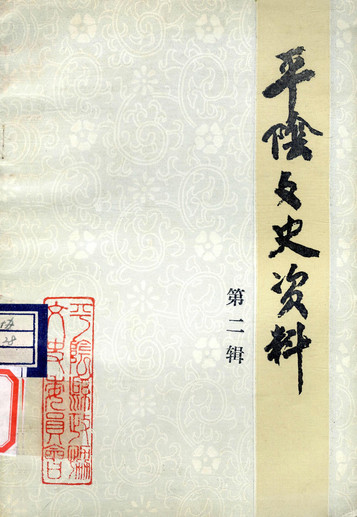 平阴文史资料
第二辑
平陰縣政協
文史委員會
28